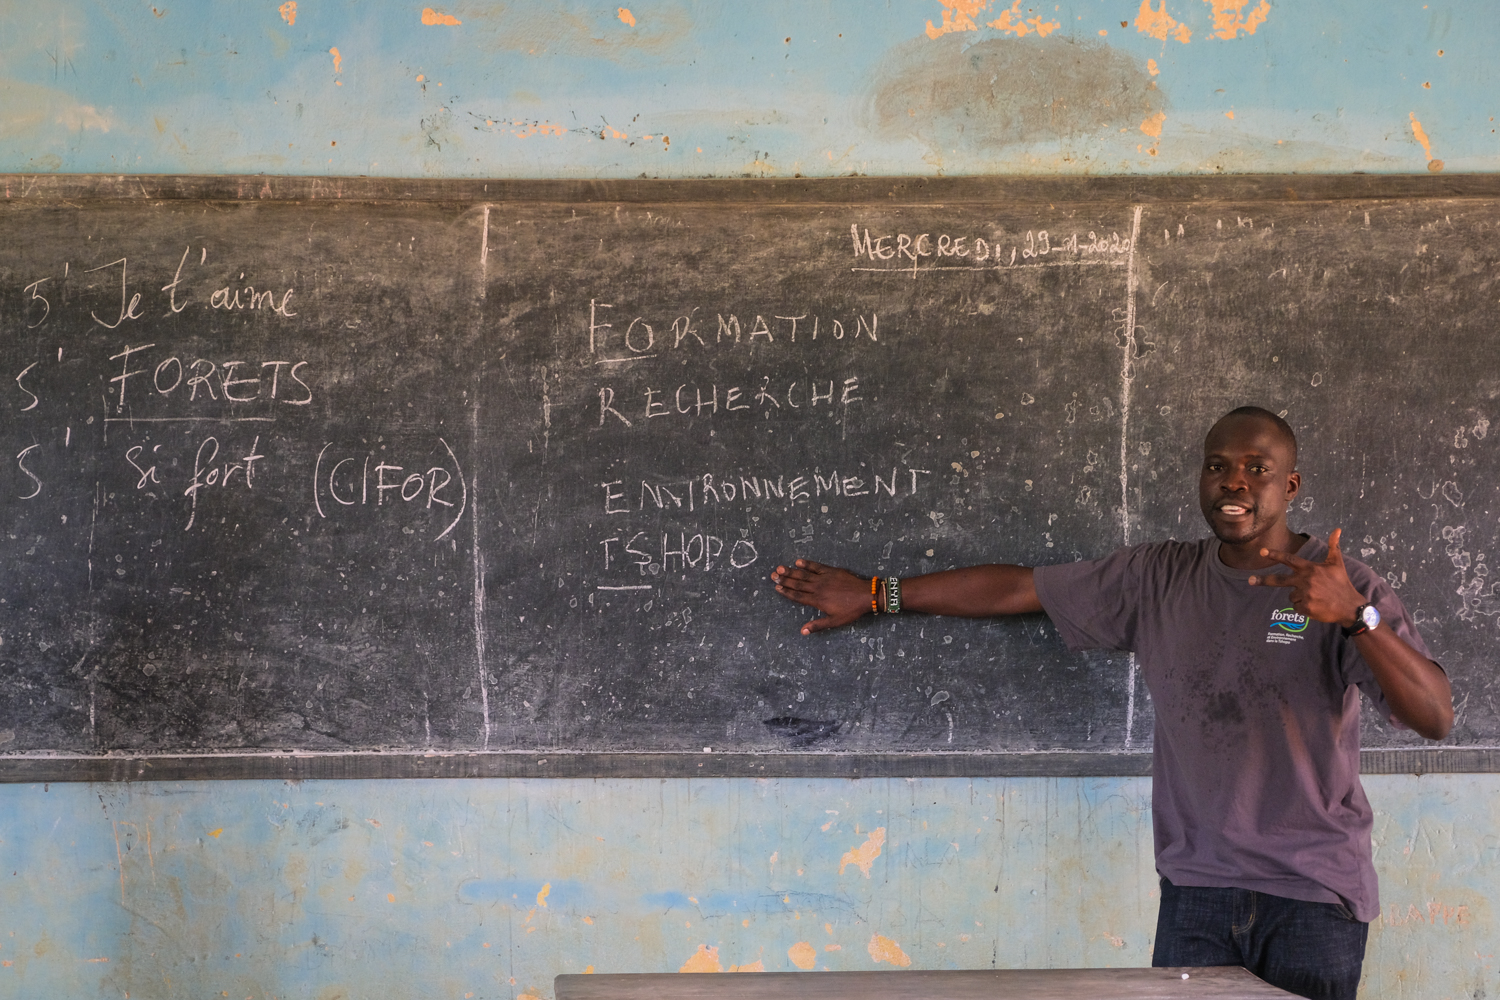 5' Je t'aime
5' FORETS
5' si fort (CIFOR)
MERCREDI, 29-1-2020
FORMATION
RECHERCHE
ENVIRONNEMENT
TSHOPO
ENYA
forets
Formation, Recherche,
et Environnement
dans la Tshopo